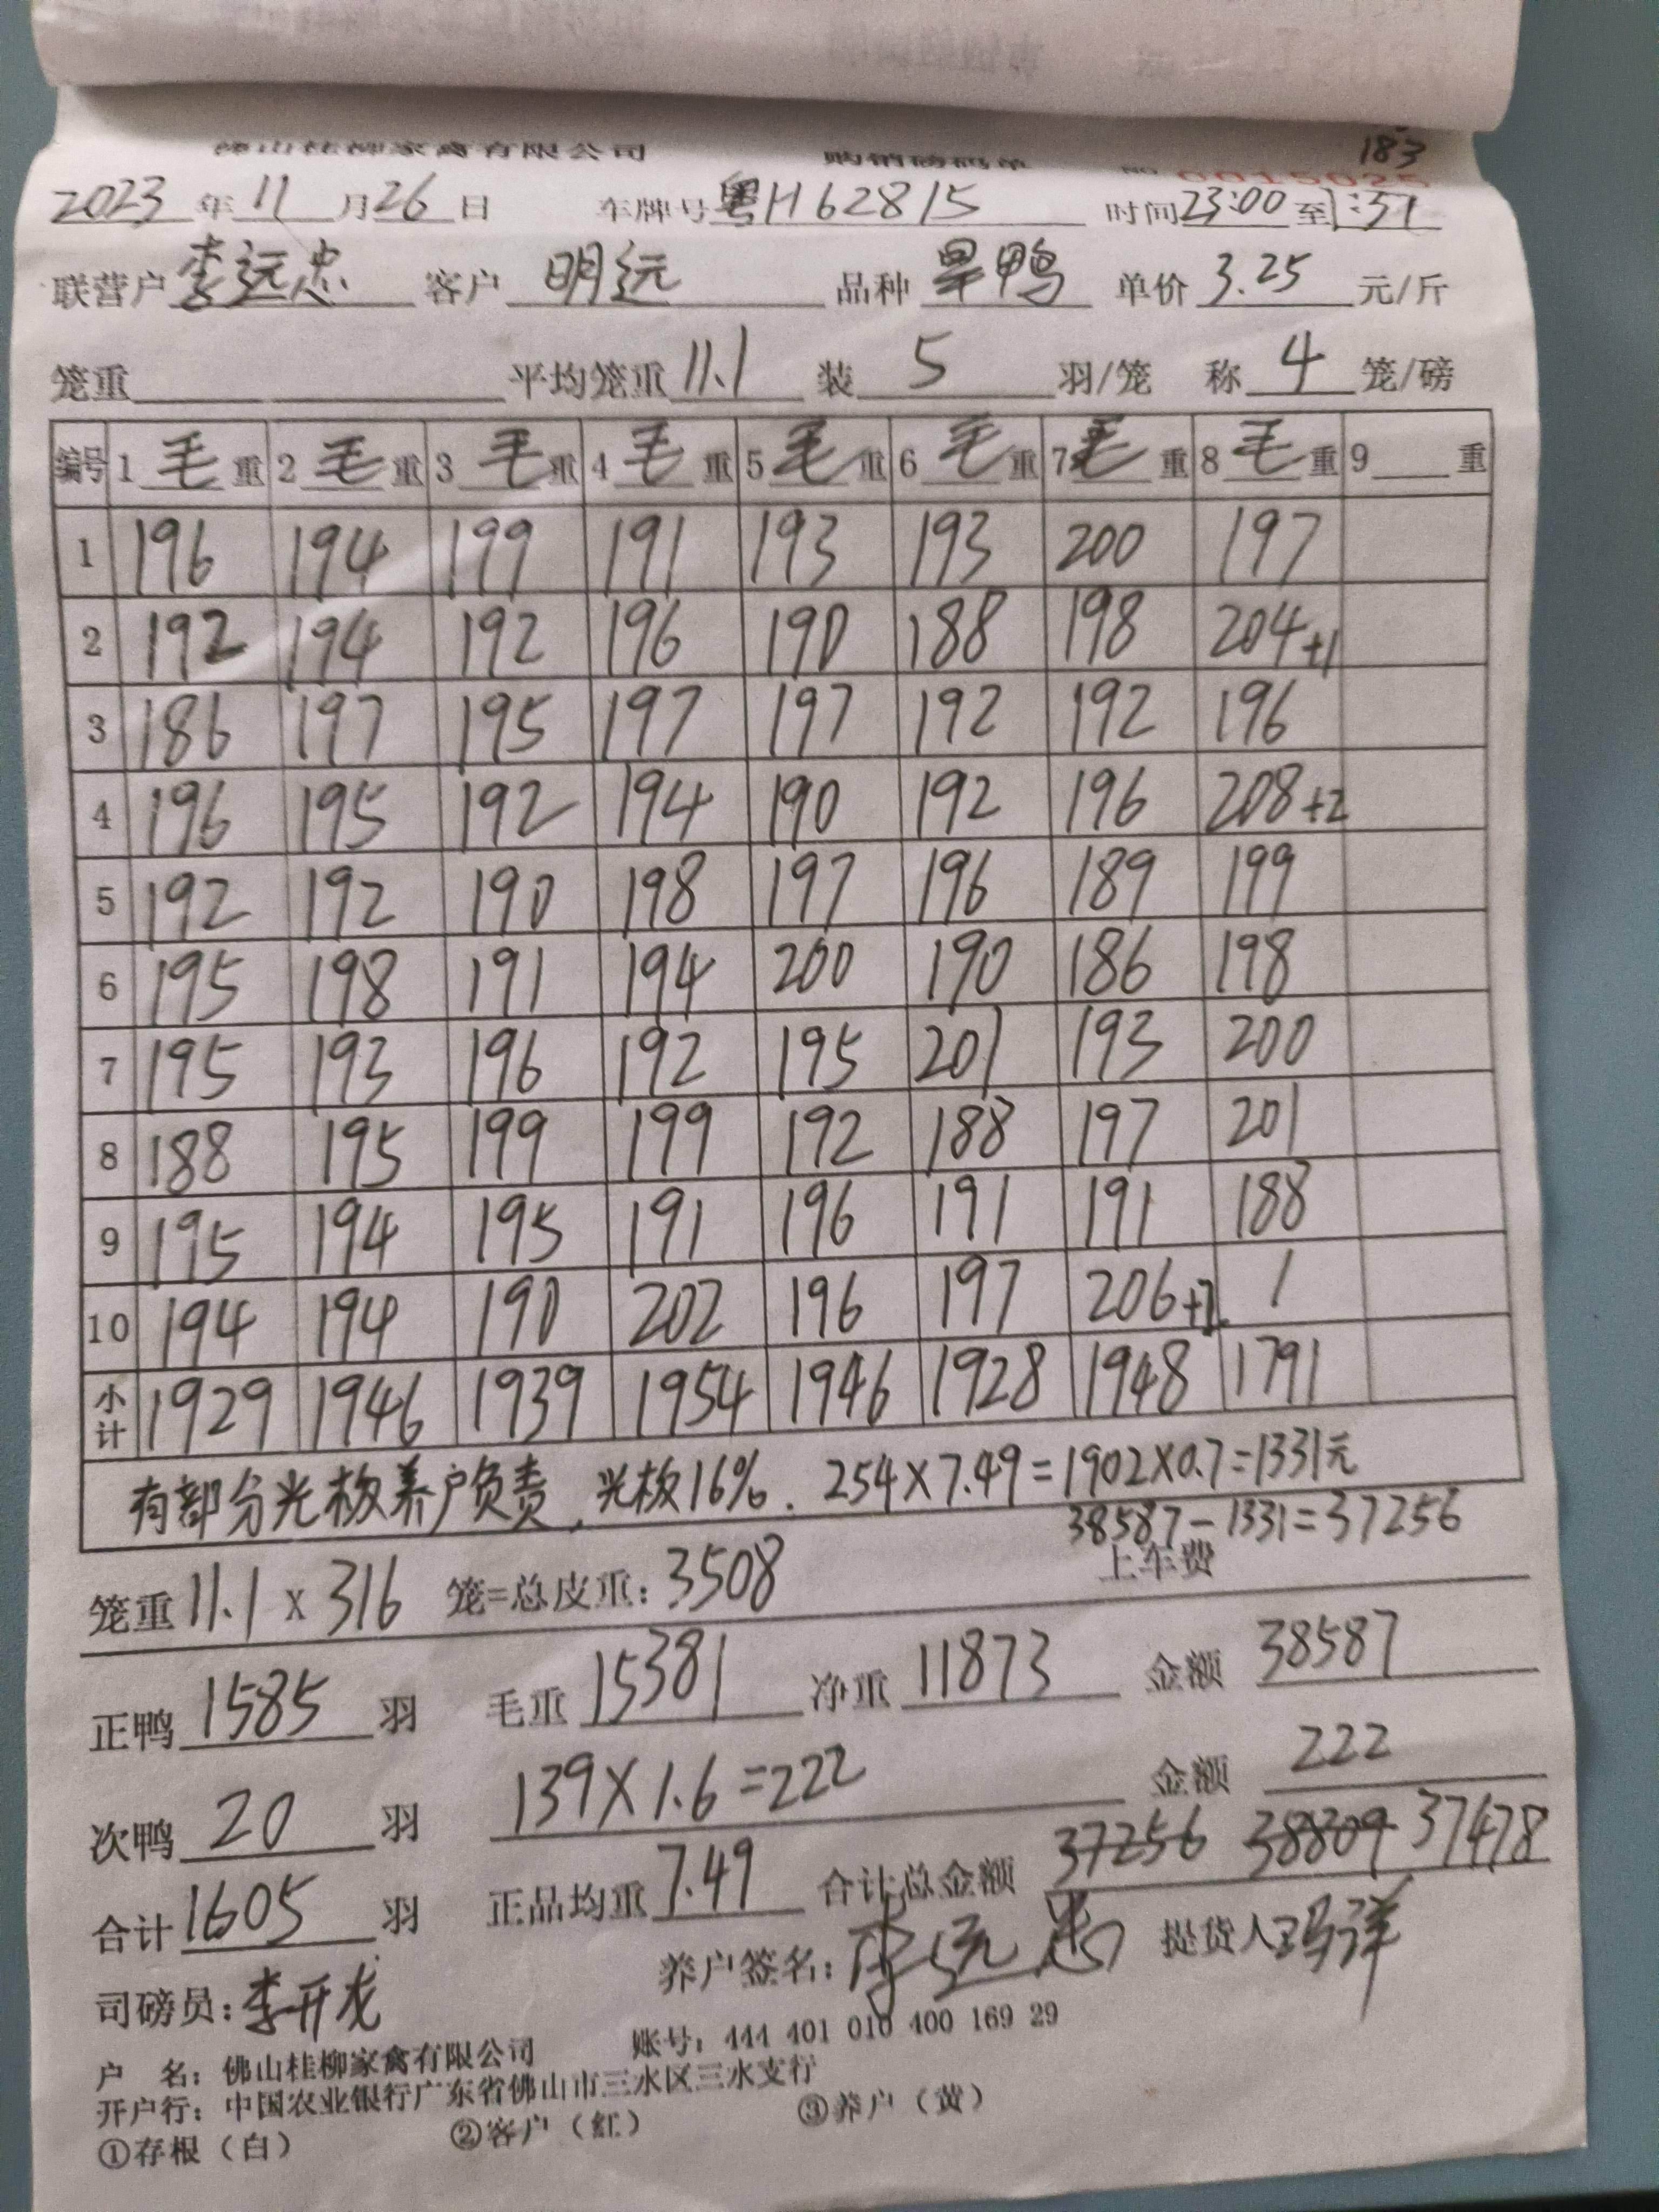 183
佛山桂柳家禽有限公司 购销磅码单 NO 0015025
2023年11月26日 车牌号粤H62815 时间23:00至1:51
联营户李远忠 客户明远 品种旱鸭 单价3.25元/斤
笼重 平均笼重11.1 装5羽/笼 称4笼/磅
编号 1毛重 2毛重 3毛重 4毛重 5毛重 6毛重 7毛重 8毛重 9重
1 196 194 199 191 193 193 200 197
2 192 194 192 196 190 188 198 204+1
3 186 197 195 197 197 192 192 196
4 196 195 192 194 190 192 196 208+2
5 192 192 190 198 197 196 189 199
6 195 198 191 194 200 190 186 198
7 195 193 196 192 195 201 193 200
8 188 195 199 199 192 188 197 201
9 195 194 195 191 196 191 191 188
10 194 194 190 202 196 197 206+2 /
小计 1929 1946 1939 1954 1946 1928 1948 1791
有部分光板养户负责,光板16%. 254×7.49=1902×0.7=1331元
38587-1331=37256
上车费
笼重11.1×316 笼=总皮重:3508
正鸭1585羽 毛重15381 净重11873 金额38587
次鸭20羽 139×1.6=222 金额222
合计1605羽 正品均重7.49 合计总金额 37256 38809 37478
司磅员:李开龙 养户签名:李远忠 提货人
户 名:佛山桂柳家禽有限公司 账号:444 401 010 400 169 29
开户行:中国农业银行广东省佛山市三水区三水支行
①存根(白) ②客户(红) ③养户(黄)